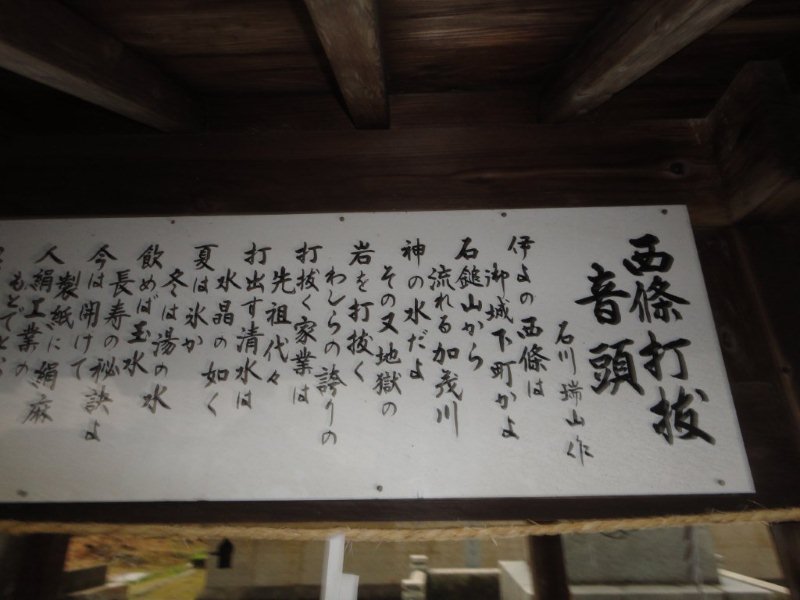 西條打抜
音頭
石川瑞山作
伊よの西條は
御城下町かよ
石鎚山から
流れる加茂川
神の水だよ
その又地獄の
岩を打抜く
わしらの誇りの
打抜く家業は
先祖代々
打出す清水は
水晶の如く
夏は氷か
冬は湯の水
飲めば玉水
長寿の秘訣よ
今は開けて
製紙に絹麻
人絹工業の
もとでと